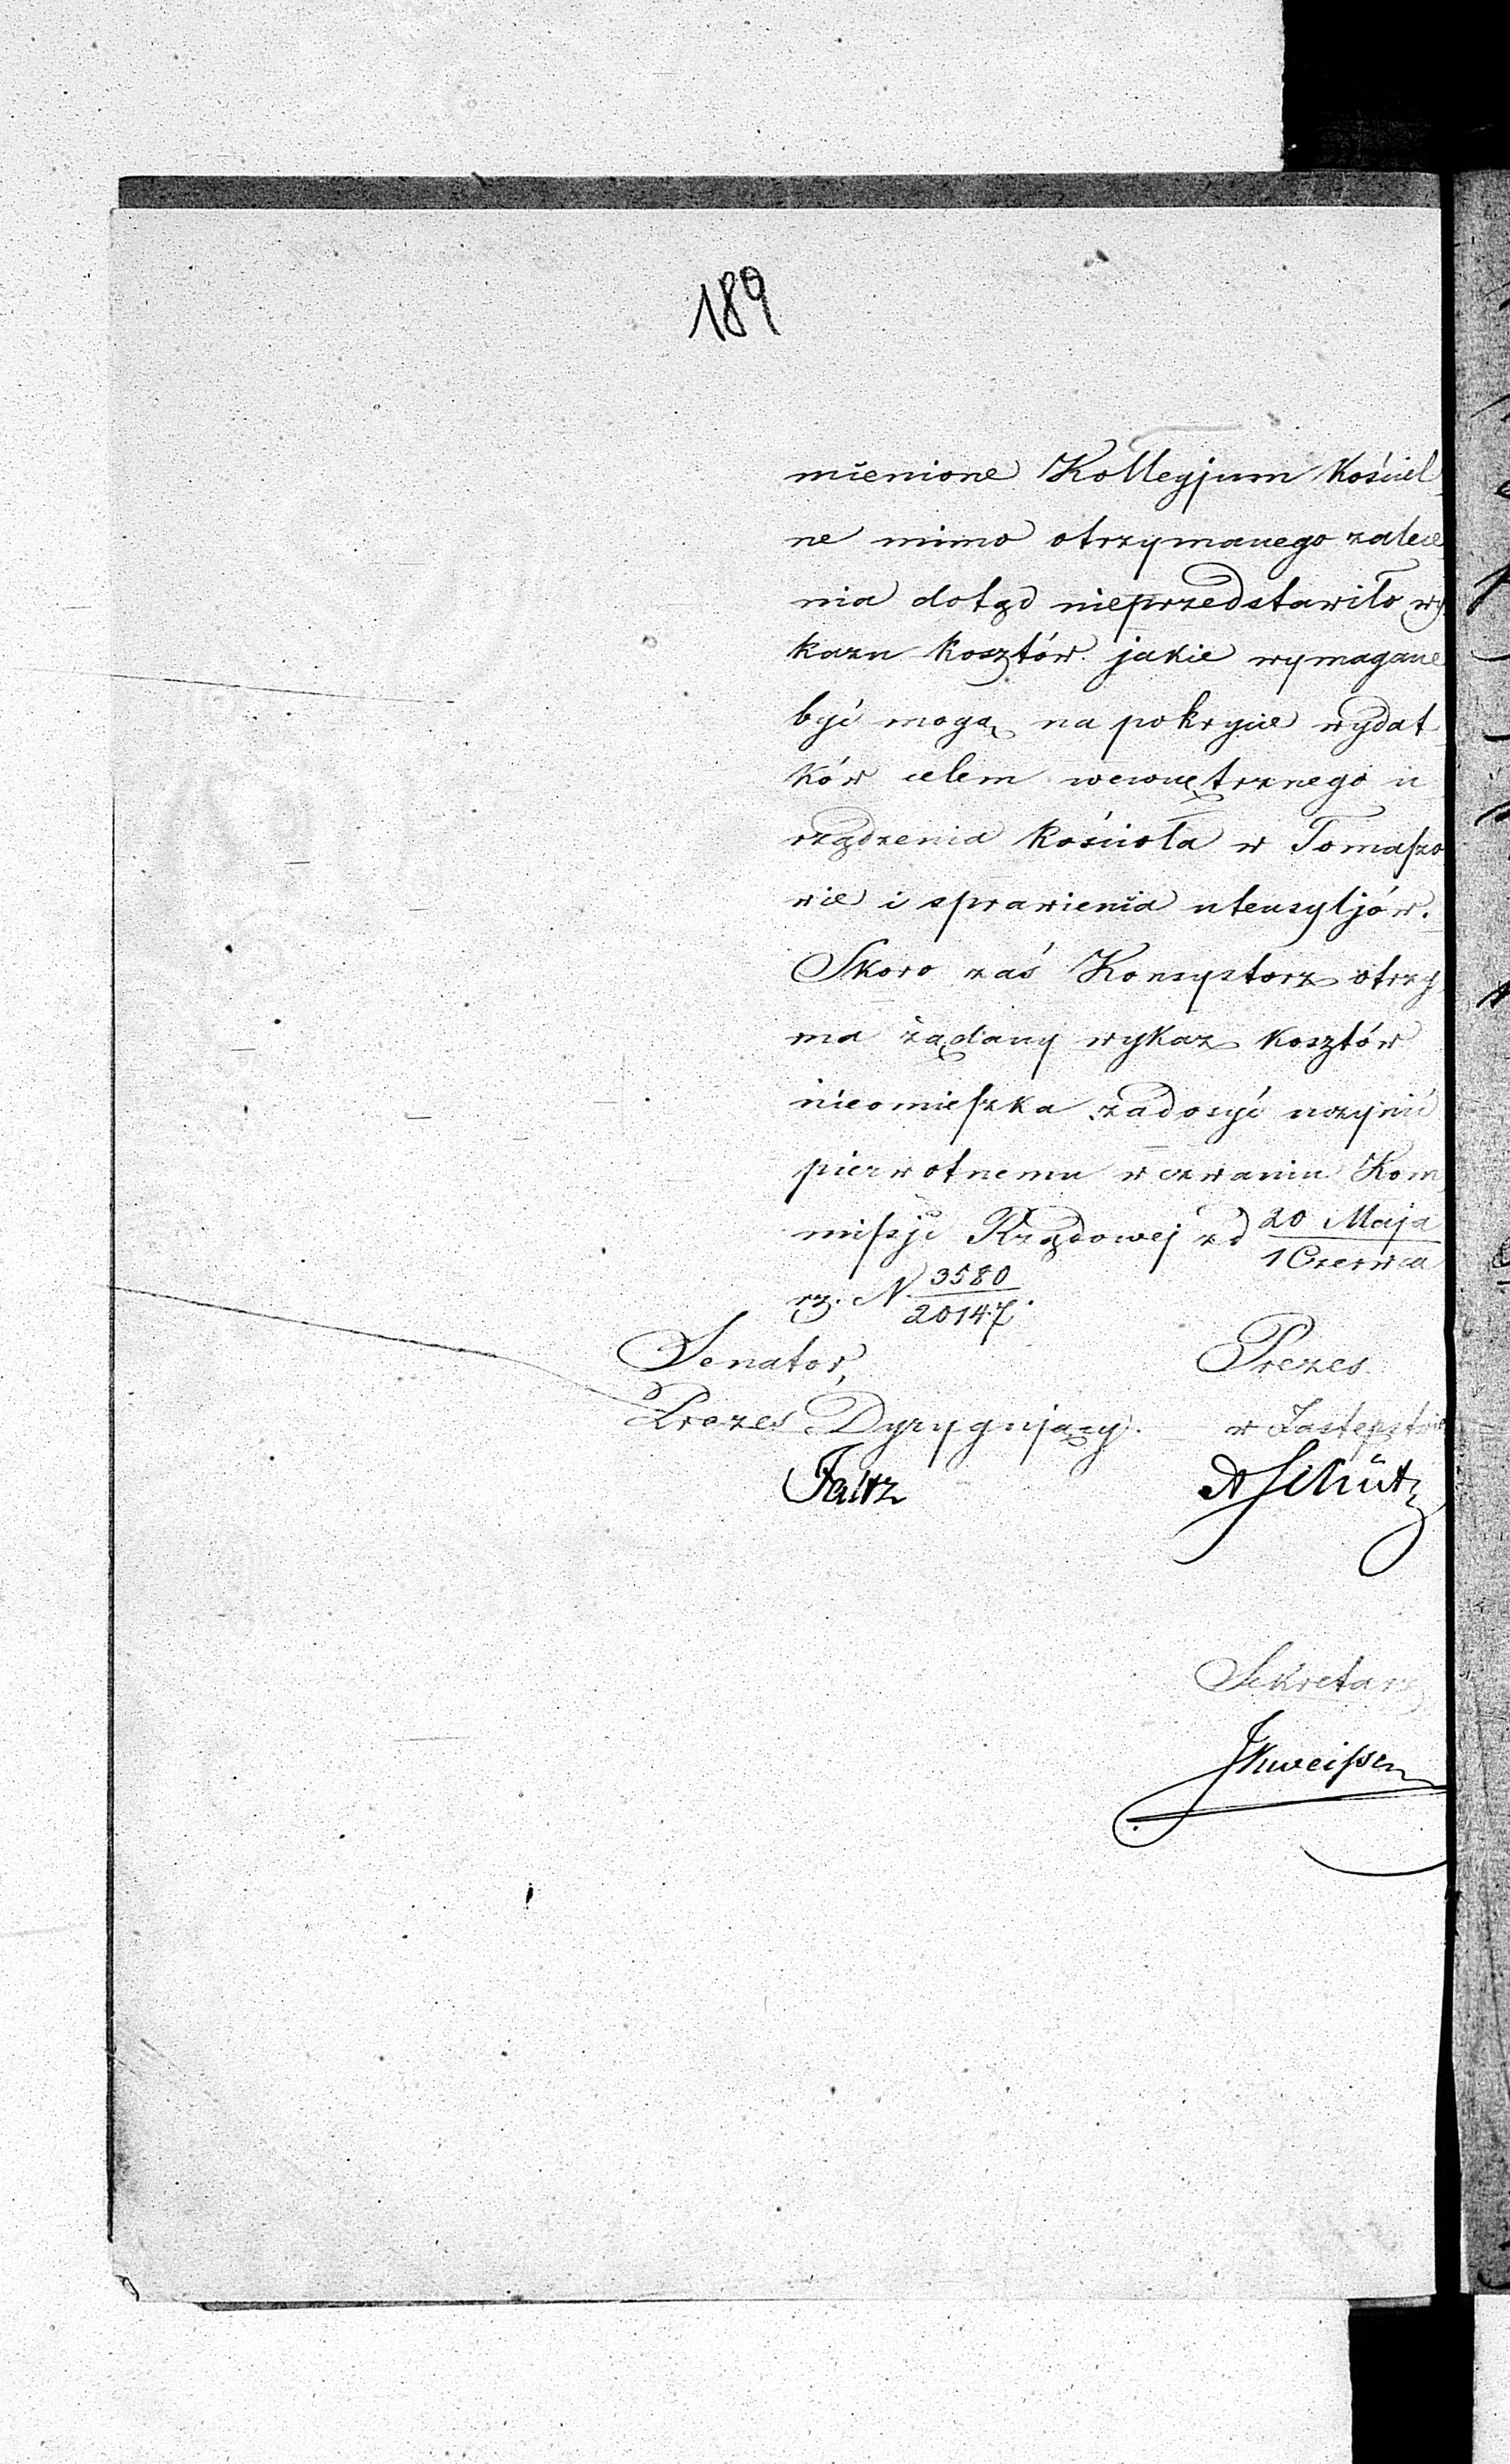 189
mienione Kollegjum Kościel
ne mimo otrzymanego zalece
nia dotąd nieprzedstawiło wy
kazu kosztów jakie wymagane
być mogą na pokrycie wydat
ków celem wewnętrznego u
rządzenia Kościoła w Tomaszo
wie i sprawienia utensyljów.
Skoro zaś Konsystorz otrzy
ma żądany wykaz kosztów
nieomieszka zadosyć uczynić
pierwotnemu wezwaniu Kom
missji Rządowej z d 20 Maja / 1 Czerwca
rz. N 3580 / 20147.
Senator, Prezes
Prezes Dyrygujący. w Zastępstwie
A Schütz
Sekretarz